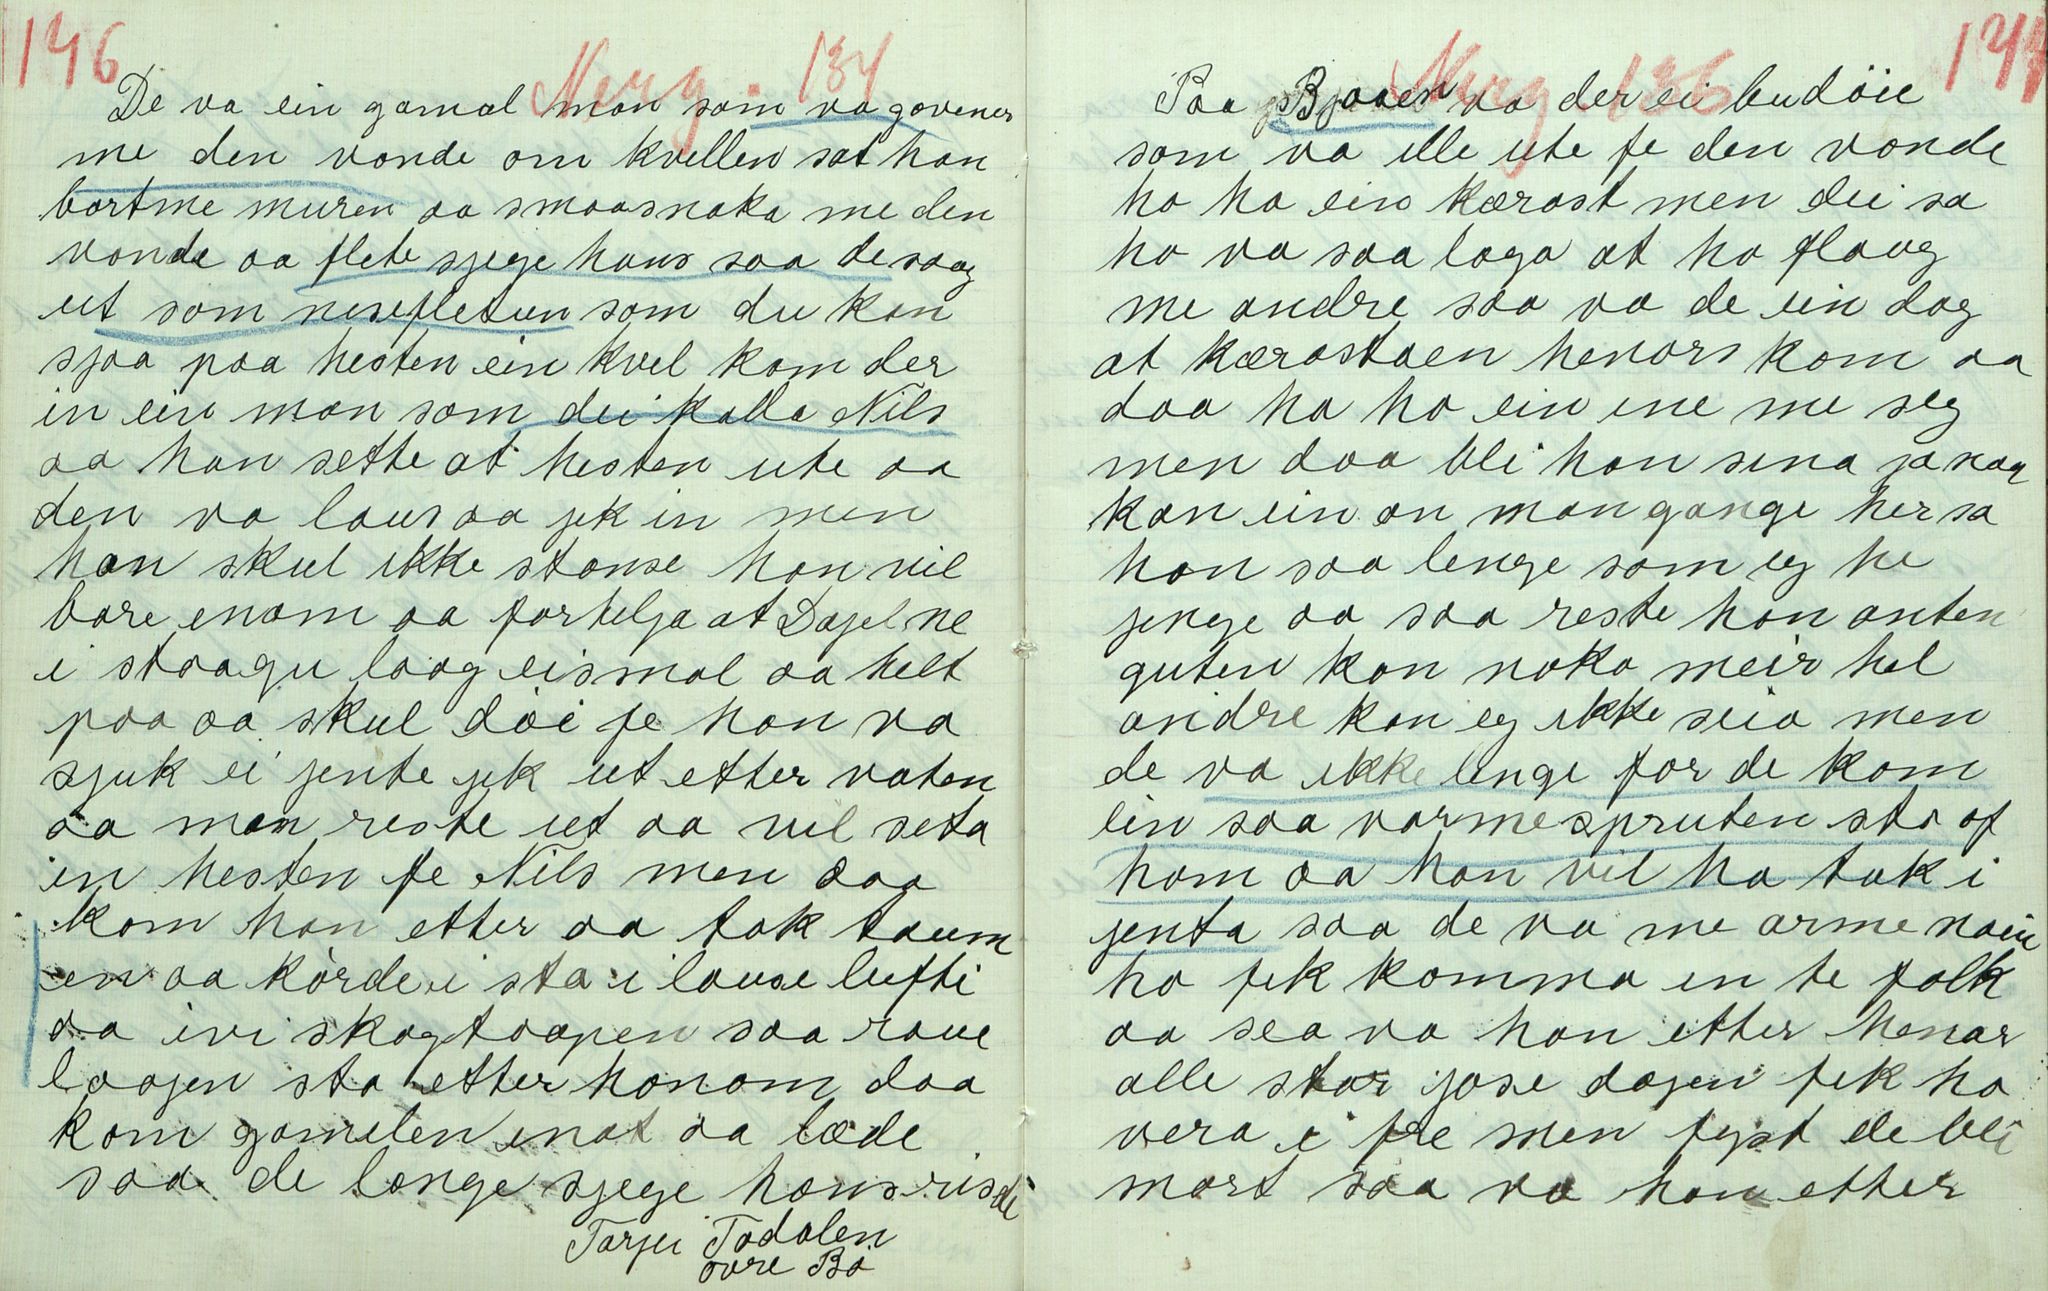 146
Merg. 134
De va ein gamal man som va govener
me den vonde om kvellen sat han
bortme muren aa smaasnaka me den
vonde aa flete sjege hans saa de saag
ut som nisefletun som du kan
sjaa paa hesten ein kvel kom der
in ein man som dei kalla Nils
aa han sette at hesten ute aa
den va laus aa jek in men
han skul ikke stanse han vil
bare enom aa fortelja at Dagel ne
i staagu laag eismal aa helt
paa aa skul döi fe han va
sjuk ei jente jek ut etter vaten
aa man reste ut aa vil seta
in hesten fe Nils men daa
kom han etter aa tok taum
en aa körde i sta i lause lufti
aa ivi skogtoapen saa raue
laagen sto etter honom daa
kom gamelen inat aa læde
saa de lange sjege hans risde
Tarjei Todalen
övre Bö
147
Merg 136
Paa Bjaaen va der ei budöie
som va ille ute fe den vonde
ho ha ein kærast men dei sa
ho va saa laga at ho flaug
me andre saa va de ein dag
at kærastaen henors kom aa
daa ha ho ein ene me seg
men daa bli han sina ja naag
kan ein an man gange her sa
han saa lenge som eg he
jenge aa saa reste han anten
guten kan noko meir hel
andre kan eg ikke seia men
de va ikke lenge for de kom
ein saa varmespruten sto af
hom aa han vil ha tak i
jenta saa de va me arme naie
ho fek komma in te folk
aa sea va han etter henar
alle star jose dagen fek ho
vera i fre men fyst de bli
mort saa va han etter